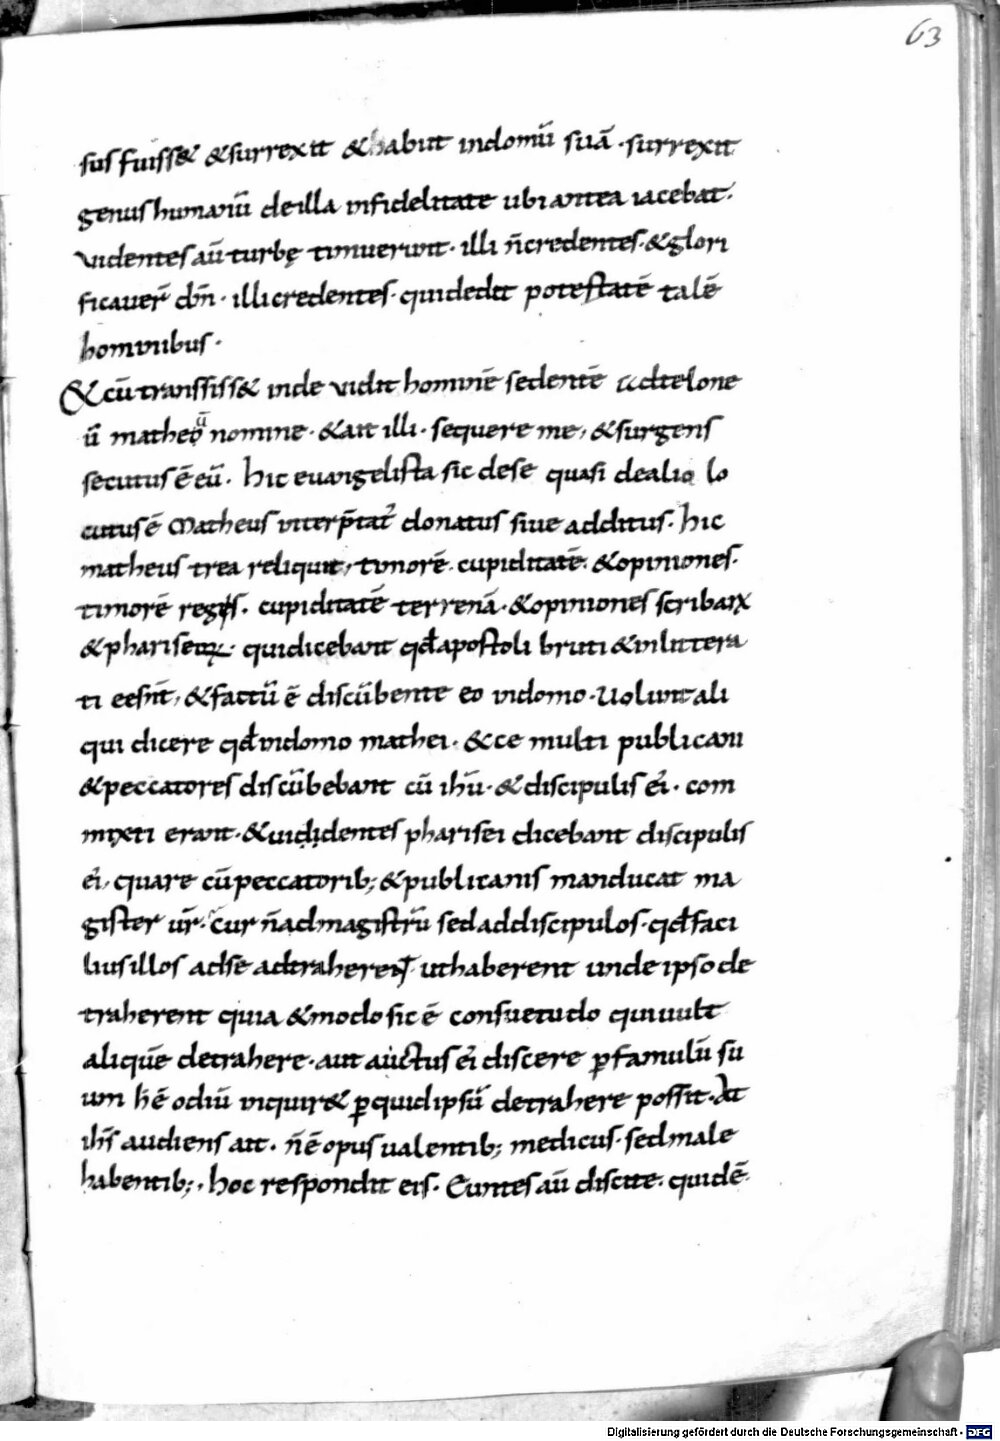 63
sus fuiss& &surrexit &habiit indomū suā · surrexit
genus humanū deilla infidelitate ubi antea iacebat·
videntes aū turbę timuerunt · illi ñcredentes · &glori
ficauer̄ dñm · illi credentes · quidedit potestatē talē
hominibus ·
&cū transiss& inde vidit hominē sedentē telone
ū matheū nomine · &ait illi · sequere me, &surgens
secutus ē eū · hic euangelista sic dese quasi dealio lo
cutus ē Matheus interp̄tat᷑ donatus siue additus · hic
matheus trea reliquit, timorē · cupiditatē · &opiniones ·
timorē regis · cupiditatē terrenā · &opiniones scribaꝝ
&phariseoꝝ · quidicebant qđ apostoli bruti &inlittera
ti eēsnt, &factū ē discūbente eo indomo · Uolunt ali
qui dicere qđ indomo mathei · &ce multi publicani
&peccatores discūbebant cū ihū · &discipulis ei᷒ · com
mixti erant · &uididentes pharisei dicebant discipulis
ei᷒, quare cūpeccatorib; &publicanis manducat ma
gister ur̄ · Cur ñadmagistrū sedaddiscipulos · qđ faci
lius illos adse adtraherent uthaberent unde ipso de
traherent quia &modo sic ē consuetudo quiuult
aliquē detrahere · aut auctus ei᷒ discere ꝑfamulū su
um hē odiū inquir& ꝑquid ipsū detrahere possit · At
ihs̄ audiens ait · ñ ē opus ualentib; medicus · sed male
habentib; · hoc respondit eis · Euntes aū discite · quidē
Digitalisierung gefördert durch die Deutsche Forschungsgemeinschaft - DFG